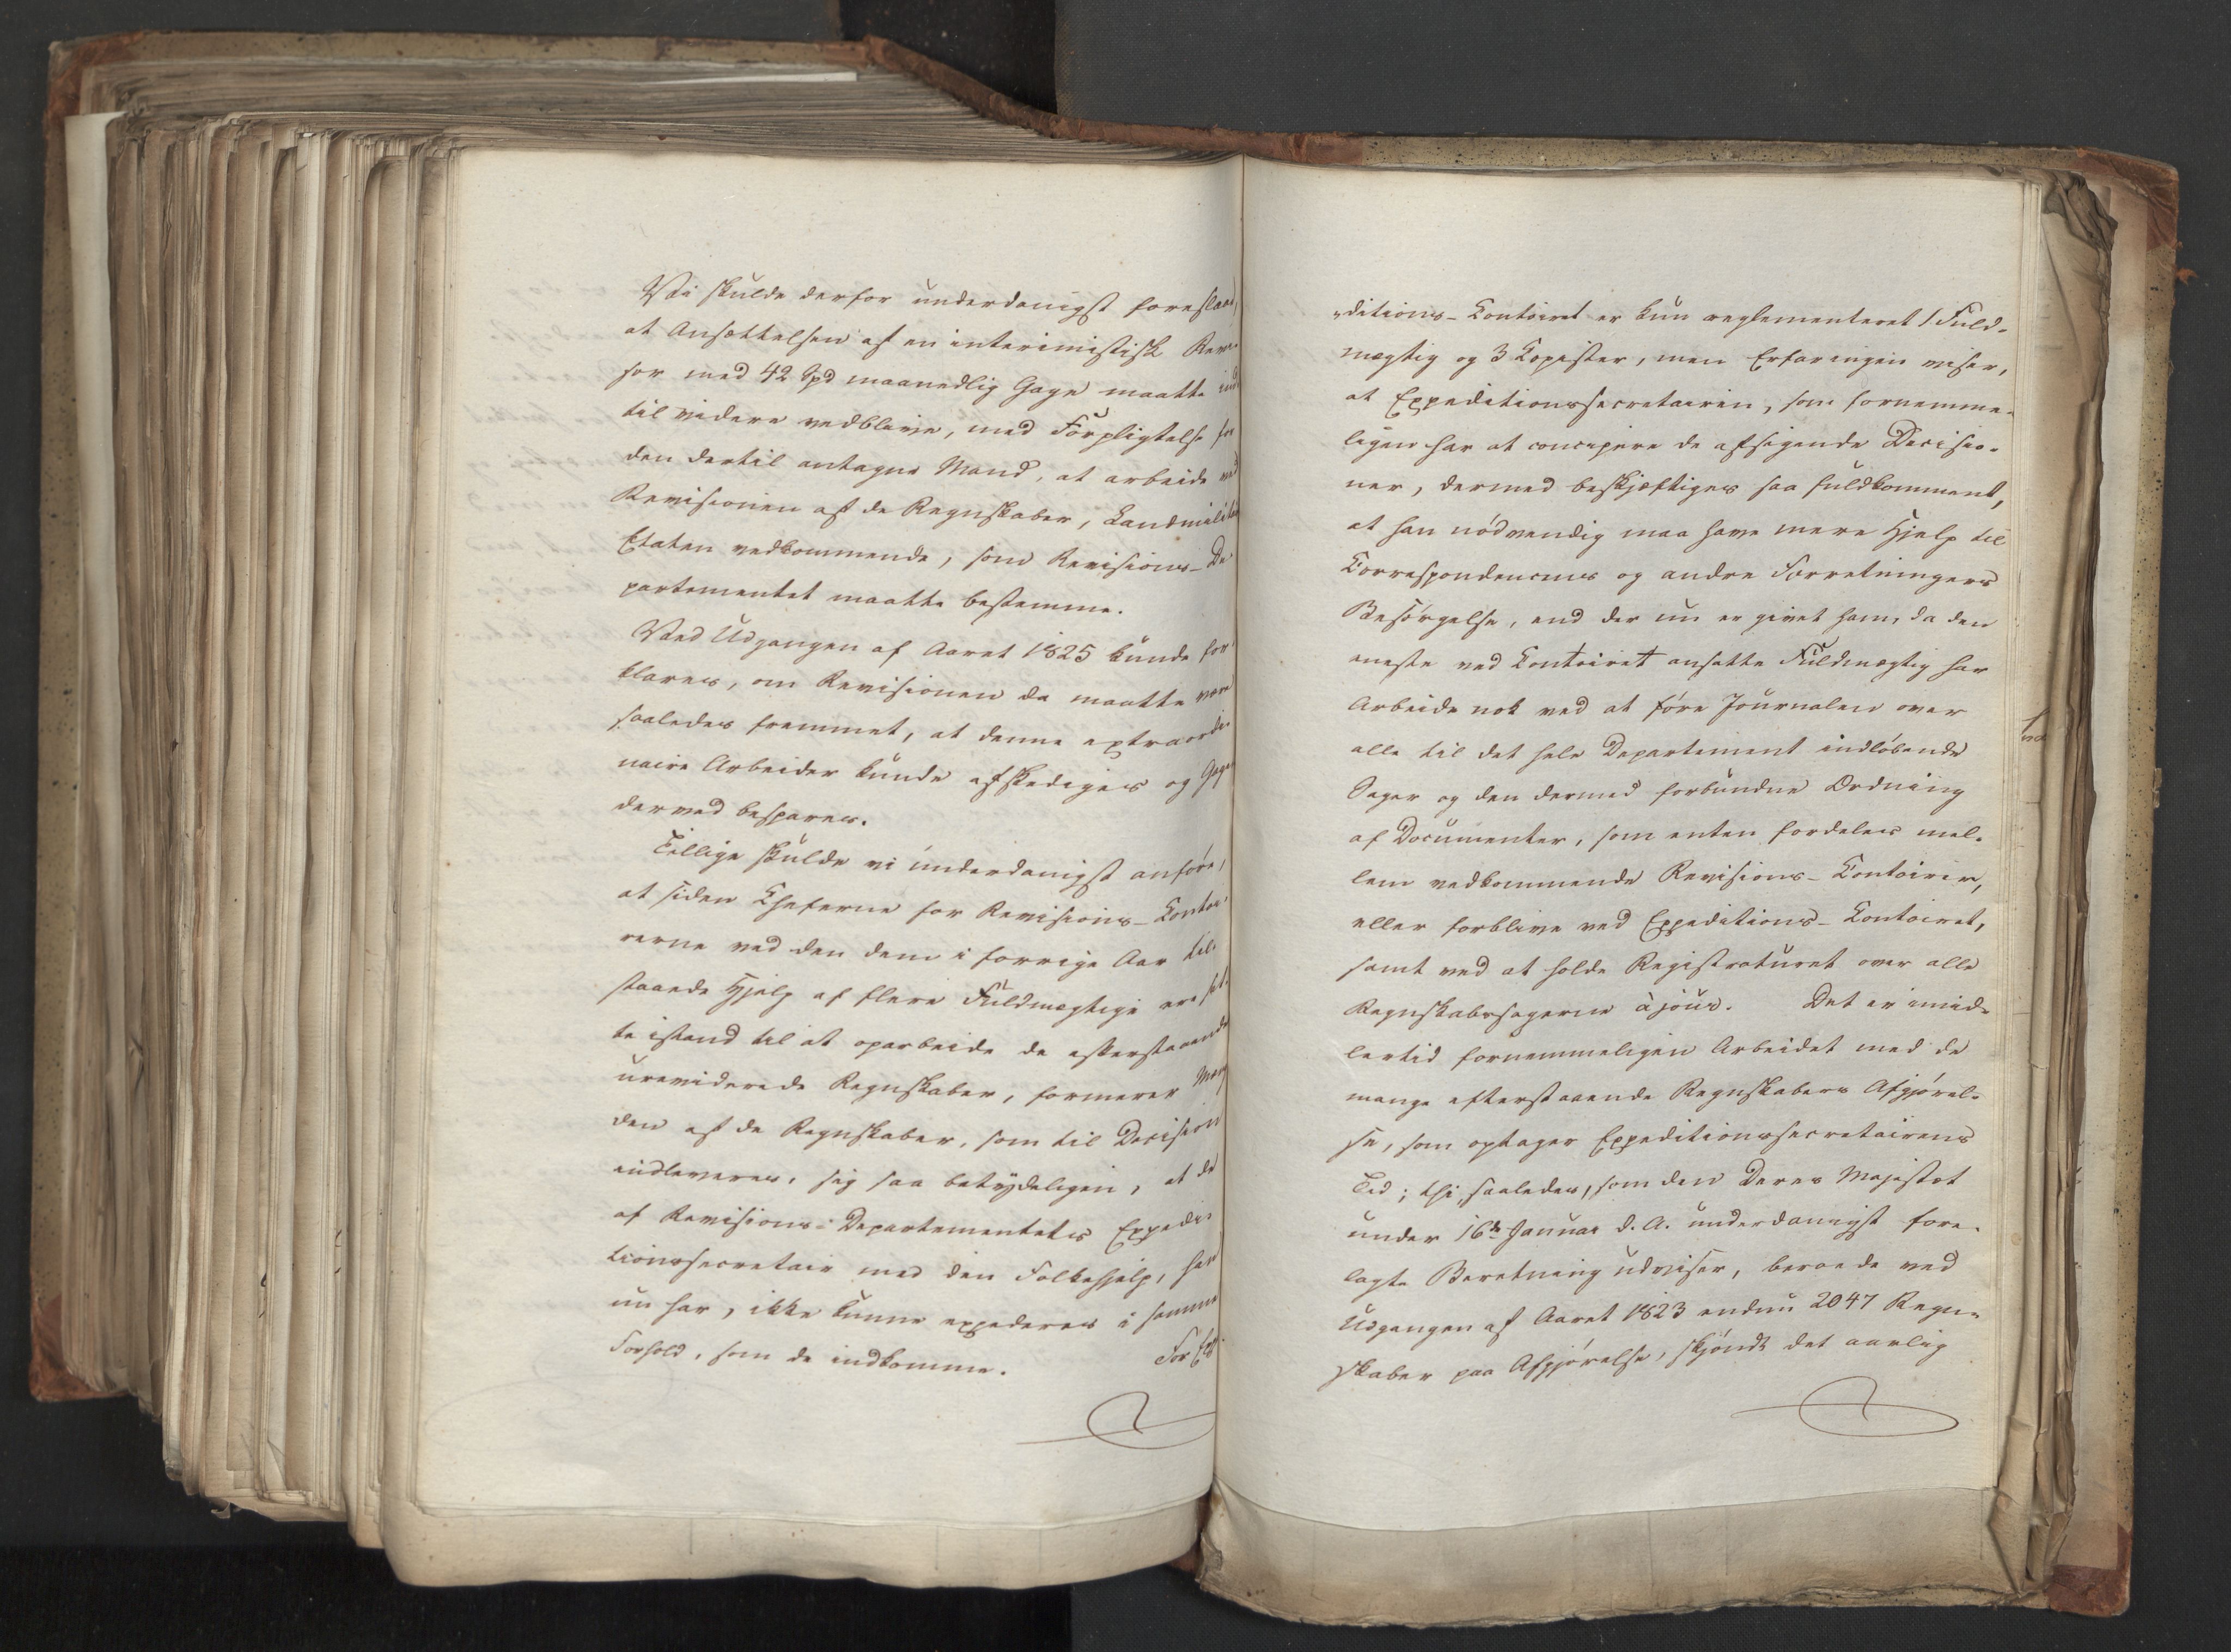 Vi skulde derfor underdanigst foreslaae,
at Ansættelsen af en interimistisk Revi-
sor med 42 Spd maanedlig Gage maatte ind
til videre vedblive, med Forpligtelse for
den dertil antagne Mand, at arbeide ved
Revisionen af de Regnskaber, Landmilitær
Etaten vedkommende, som Revisions-De
partementet maatte bestemme.
Ved Udgangen af Aaret 1825 kunde for-
klares, om Revisionen da maatte være
saaledes fremmet, at denne extraordi-
naire Arbeider kunde afskediges og Gagen
derved bespares.
Tillige skulde vi underdanigst anføre,
at siden Cheferne for Revisions-Contoi-
rerne ved den dem i forrige Aar til-
staaede Hjelp af flere Fuldmægtige ere sat-
te istand til at oparbeide de efterstaaende
ureviderede Regnskaber, formerer Mæng
den af de Regnskaber, som til Decision
indleveres, sig saa betydeligen, at de
af Revisions-Departementets Expedi-
tionssecretair med den Folkehjelp, han
nu har, ikke kunne expederes i samme
Forhold, som de indkomme.
For Ex-
"ditions-Contoiret er kun reglementeret 1 Fuld-
mægtig og 3 Copister, men Erfaringen viser,
at Expeditionssecretairen, som fornemme-
ligen har at concipere de afsigende Decisio-
ner, dermed beskjæftiges saa fuldkomment,
at han nødvendig maa have mere Hjelp til
Correspondencens og andre Forretningers
Besørgelse, end der nu er givet ham, da den
eneste ved Contoiret ansatte Fuldmægtig har
Arbeide nok ved at føre Journalen over
alle til det hele Departement indløbende
Sager og den dermed forbundne Ordning
af Documenter, som enten fordeles mel-
lem vedkommende Revisions-Contoirer,
eller forblive ved Expeditions-Contoiret,
samt ved at holde Registraturet over alle
Regnskabssagerne à jour. Det er imid-
lertid fornemmeligen Arbeidet med de
mange efterstaaende Regnskabers Afgjørel-
se, som optager Expeditionssecretairens
Tid; thi, saaledes, som den Deres Majestæt
under 16de Januar d. A. underdanigst fore-
lagte Beretning udviser, beroede ved
Udgangen af Aaret 1823 endnu 2047 Regn-
skaber paa Afgjørelse, skjøndt det aarlig